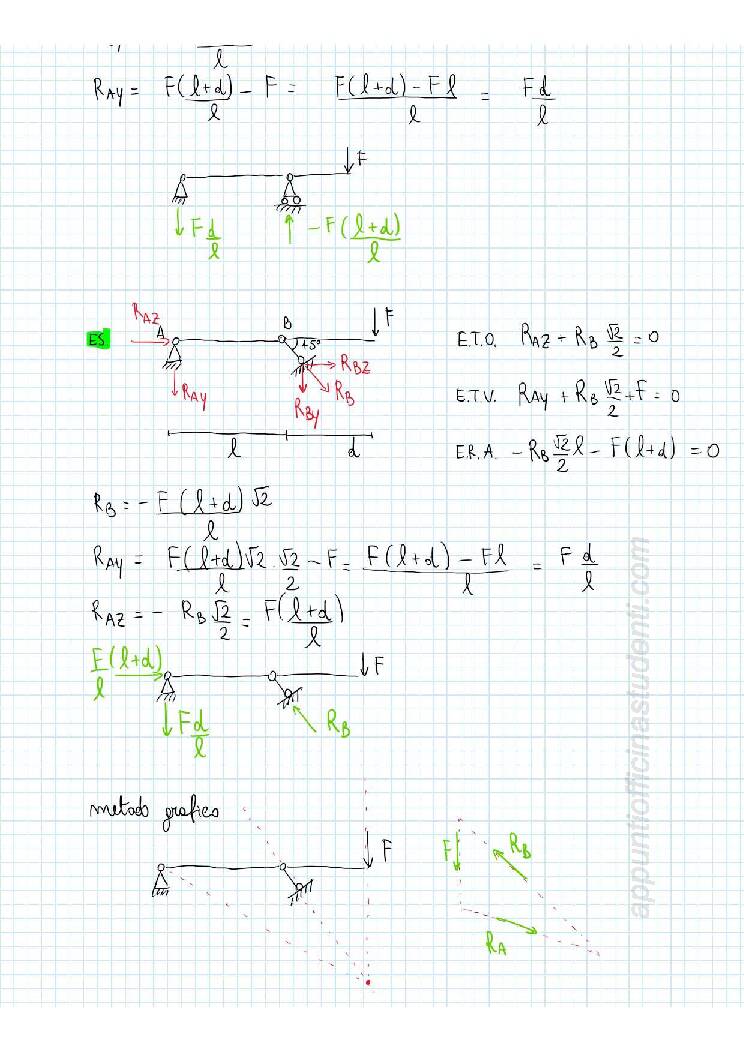 l
R_AY = F(l+d)/l - F = F(l+d) - Fl / l = Fd/l
F
F d/l
- F(l+d)/l
ES
R_AZ
A
B
F
45°
R_BZ
R_B
R_BY
R_AY
l
d
E.T.O. R_AZ + R_B √2/2 = 0
E.T.V. R_AY + R_B √2/2 + F = 0
E.R.A. - R_B √2/2 l - F(l+d) = 0
R_B = - F(l+d)/l √2
R_AY = F(l+d)/l √2 · √2/2 - F = F(l+d) - Fl / l = F d/l
R_AZ = - R_B √2/2 = F(l+d)/l
F/l (l+d)
F
F d/l
R_B
metodo grafico
F
F
R_B
R_A
appuntiofficinastudenti.com